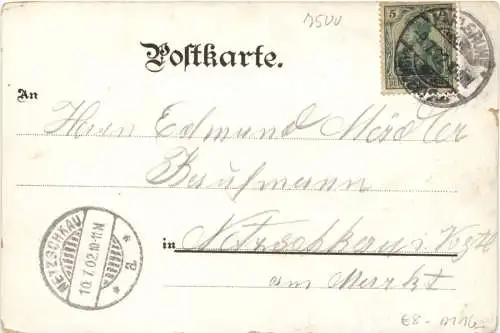 7500
5
KARLSRUHE
Postkarte.
An
Herrn Edmund Mädler
Kaufmann
in Netzschkau i. Vogtl
am Markt
NETZSCHKAU
10.7.02.10-11.V.
* a. *
€8-